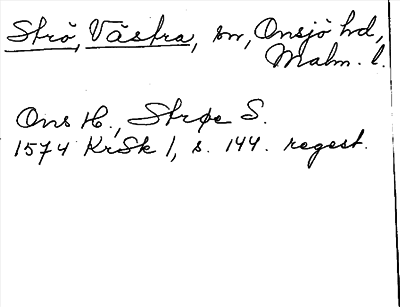 Strö, Västra, sn, Onsjö hd,
Malm. l.
Ons H., Strøe S.
1574 KrSk 1, s. 144. regest.